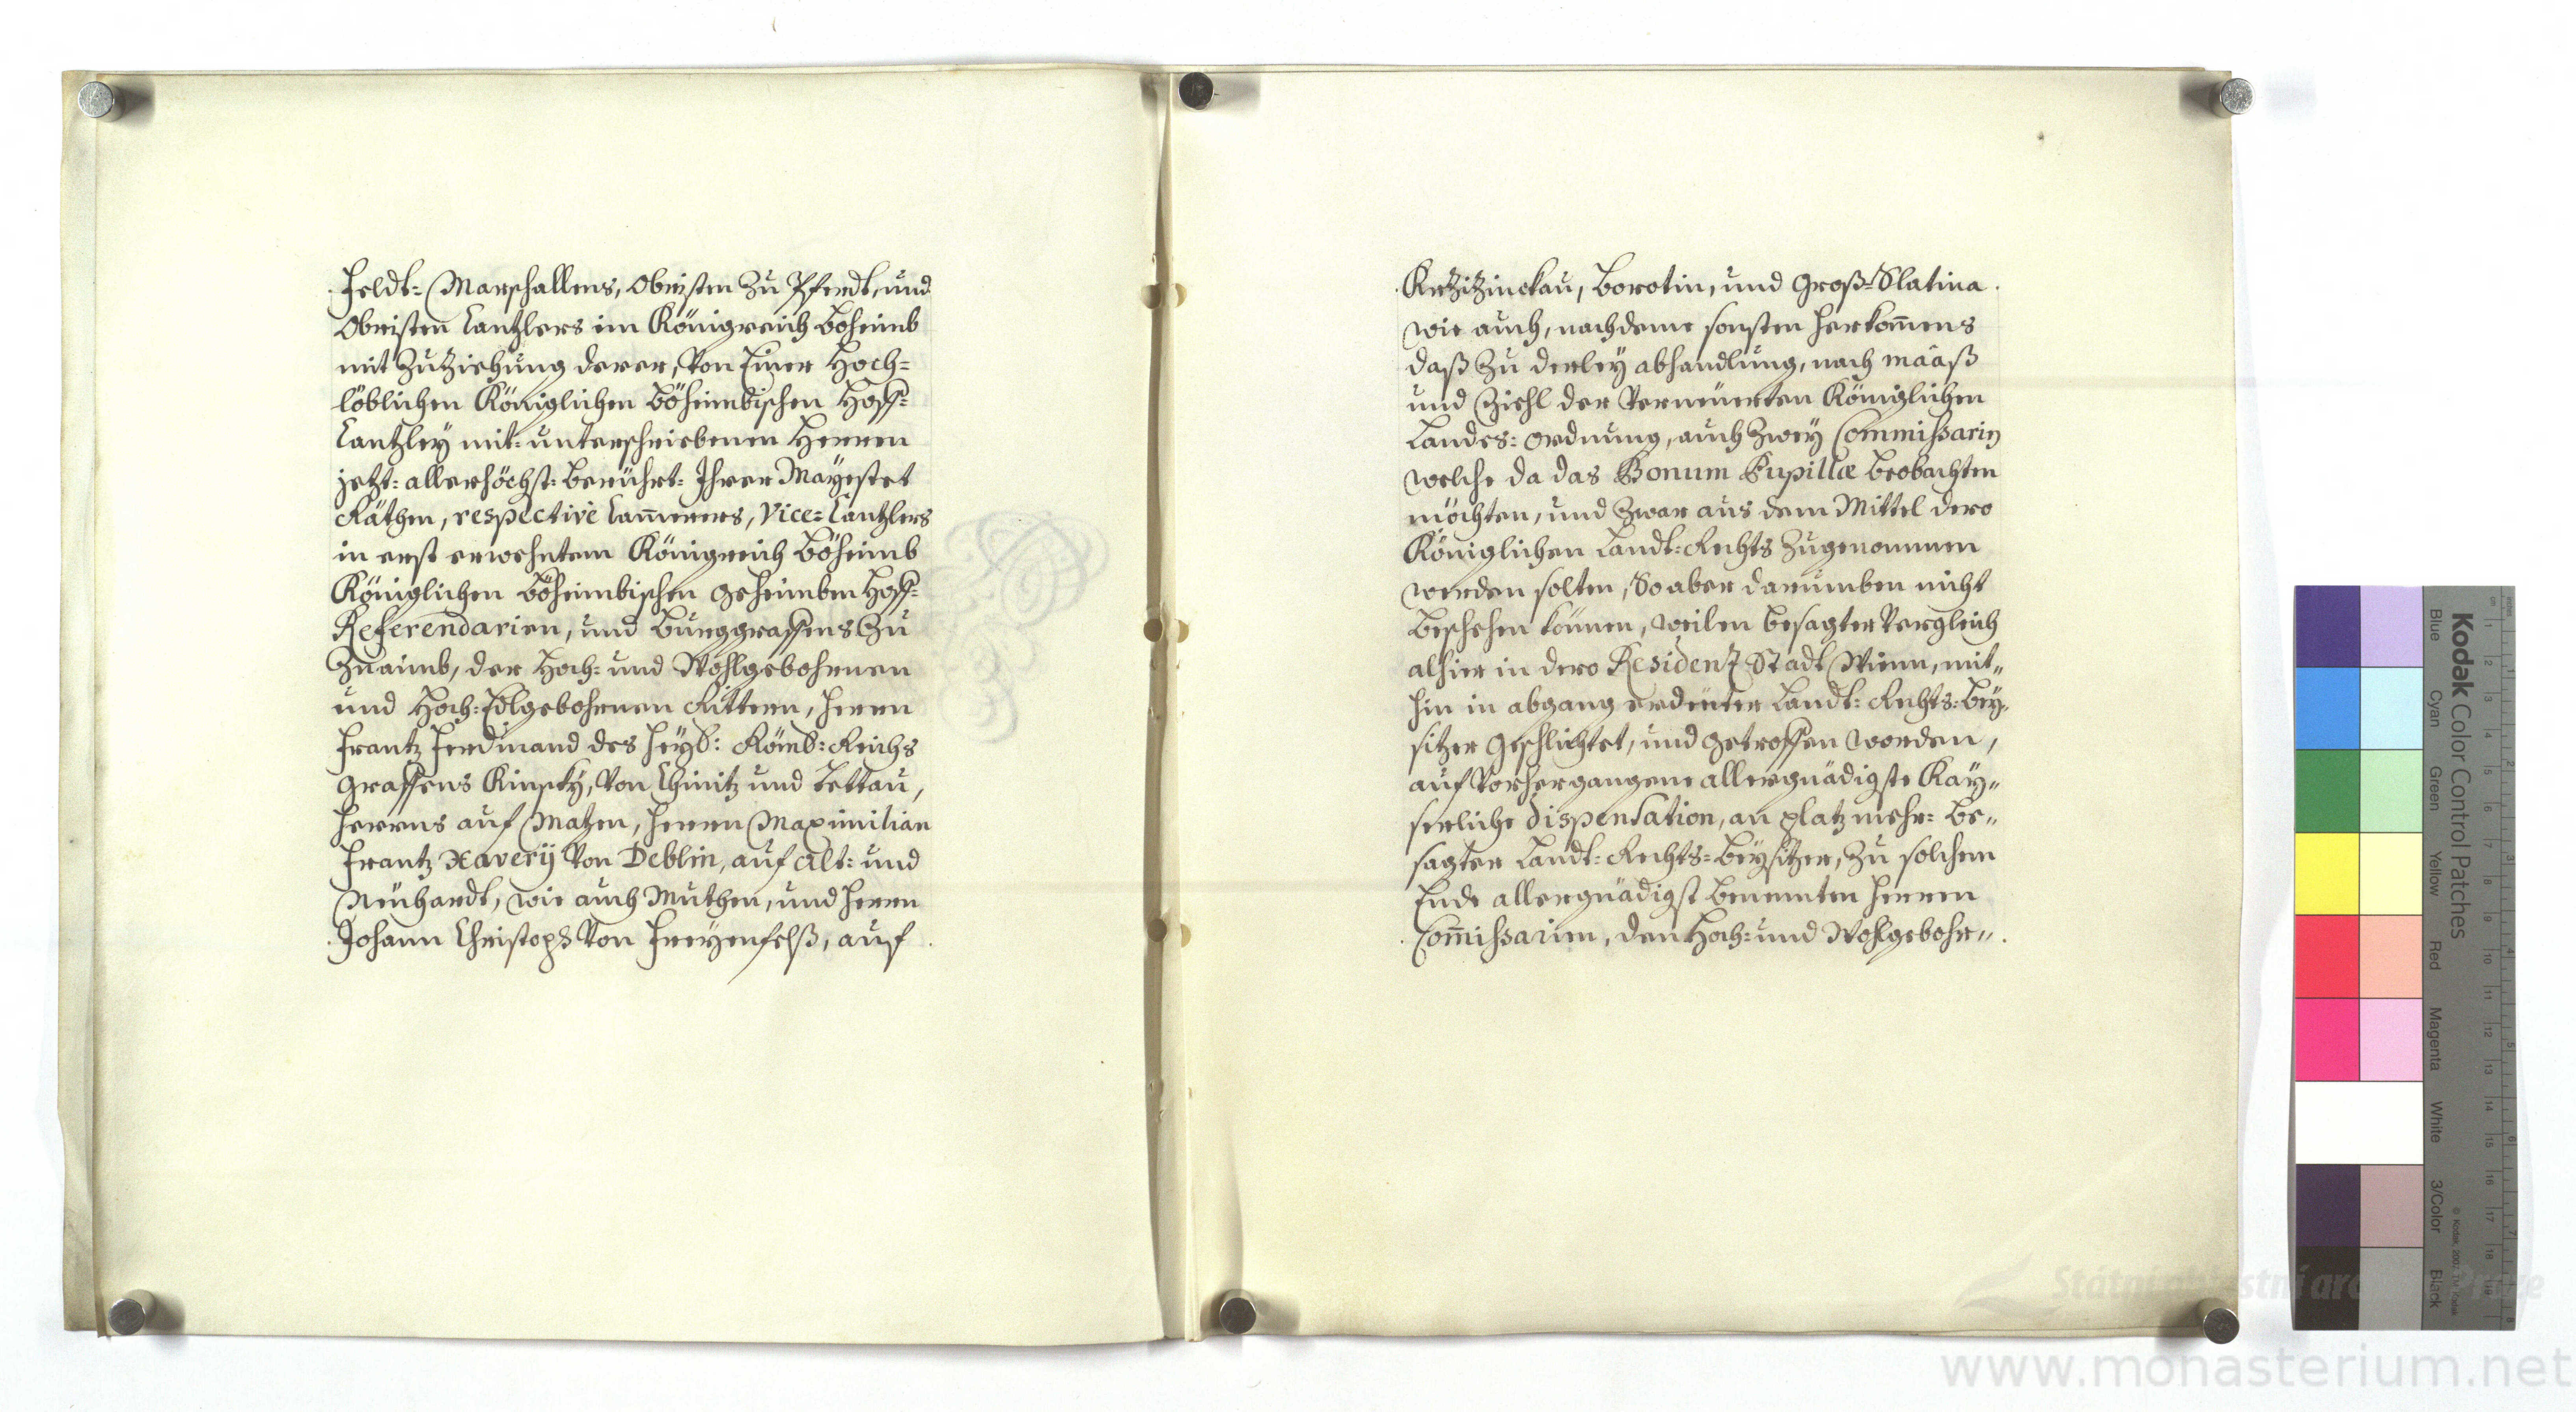 Feldt=Marschallens, Obristen Zu Pferdt, und
Obristen Cantzlers im Königreich Böheimb
mit Zuziehung derer, Von Einer Hoch=
löblichen Königlichen Böheimbischen Hoff=
Cantzley mit=unterschriebenen Herren
jetzt=allerhöchst=berührt=Ihrer Mayestet
Räthen, respectivè Cam̄erers, Vice=Cantzlers
in erst erwehntem Königreich Böheimb
Königlichen Böheimbischen geheimben Hoff=
Referendarien, und Burggraffens Zu
Znaimb, der Hoch= und Wohlgebohrnen
und Hoch=Edlgebohrnen Rittern, Herrn
Frantz Ferdinand des Heyl: Römb: Reichs
Graffens Kinsky, Von Chinitz und Tettau,
Herrns auf Matzen, Herrn Maximilian
Frantz Xaverij Von Deblin, auf Alt= und
Neuhardt, wie auch Muthen, und Herrn
Johann Christoph Von Freyenfelß, auf
Krzizinckau, Borotin, und Groß=Slatina
wie auch, nachdeme sonsten Herkom̄ens
daß Zu derley abhandlung, nach mààß
und Ziehl der Verneuerten Königlichen
Landes=Ordnung, auch Zwey Commissarij
welche da das Bonum Pupillæ beobachten
möchten, und Zwar aus dem Mittel dero
Königlichen Landt=Rechts Zugenommen
werden solten, So aber darumben nicht
beschehen können, weilen besagter Vergleich
alhier in dero Residentz Stadt Wienn, mit„
hin in abgang erdeuter Landt=Rechts=Bey„
sitzer geschlichtet, und getroffen worden,
auf Vorhergangene allergnädigste Kay„
serliche dispensation, an platz mehr=be„
sagter Landt=Rechts=Beysitzer, Zu solchem
Ende allergnädigst benennten Herren
Com̄issarien, den Hoch= und Wohlgebohr„
Kodak Color Control Patches
Blue Cyan Green Yellow Red Magenta White 3/Color Black
© Kodak, 2007
www.monasterium.net